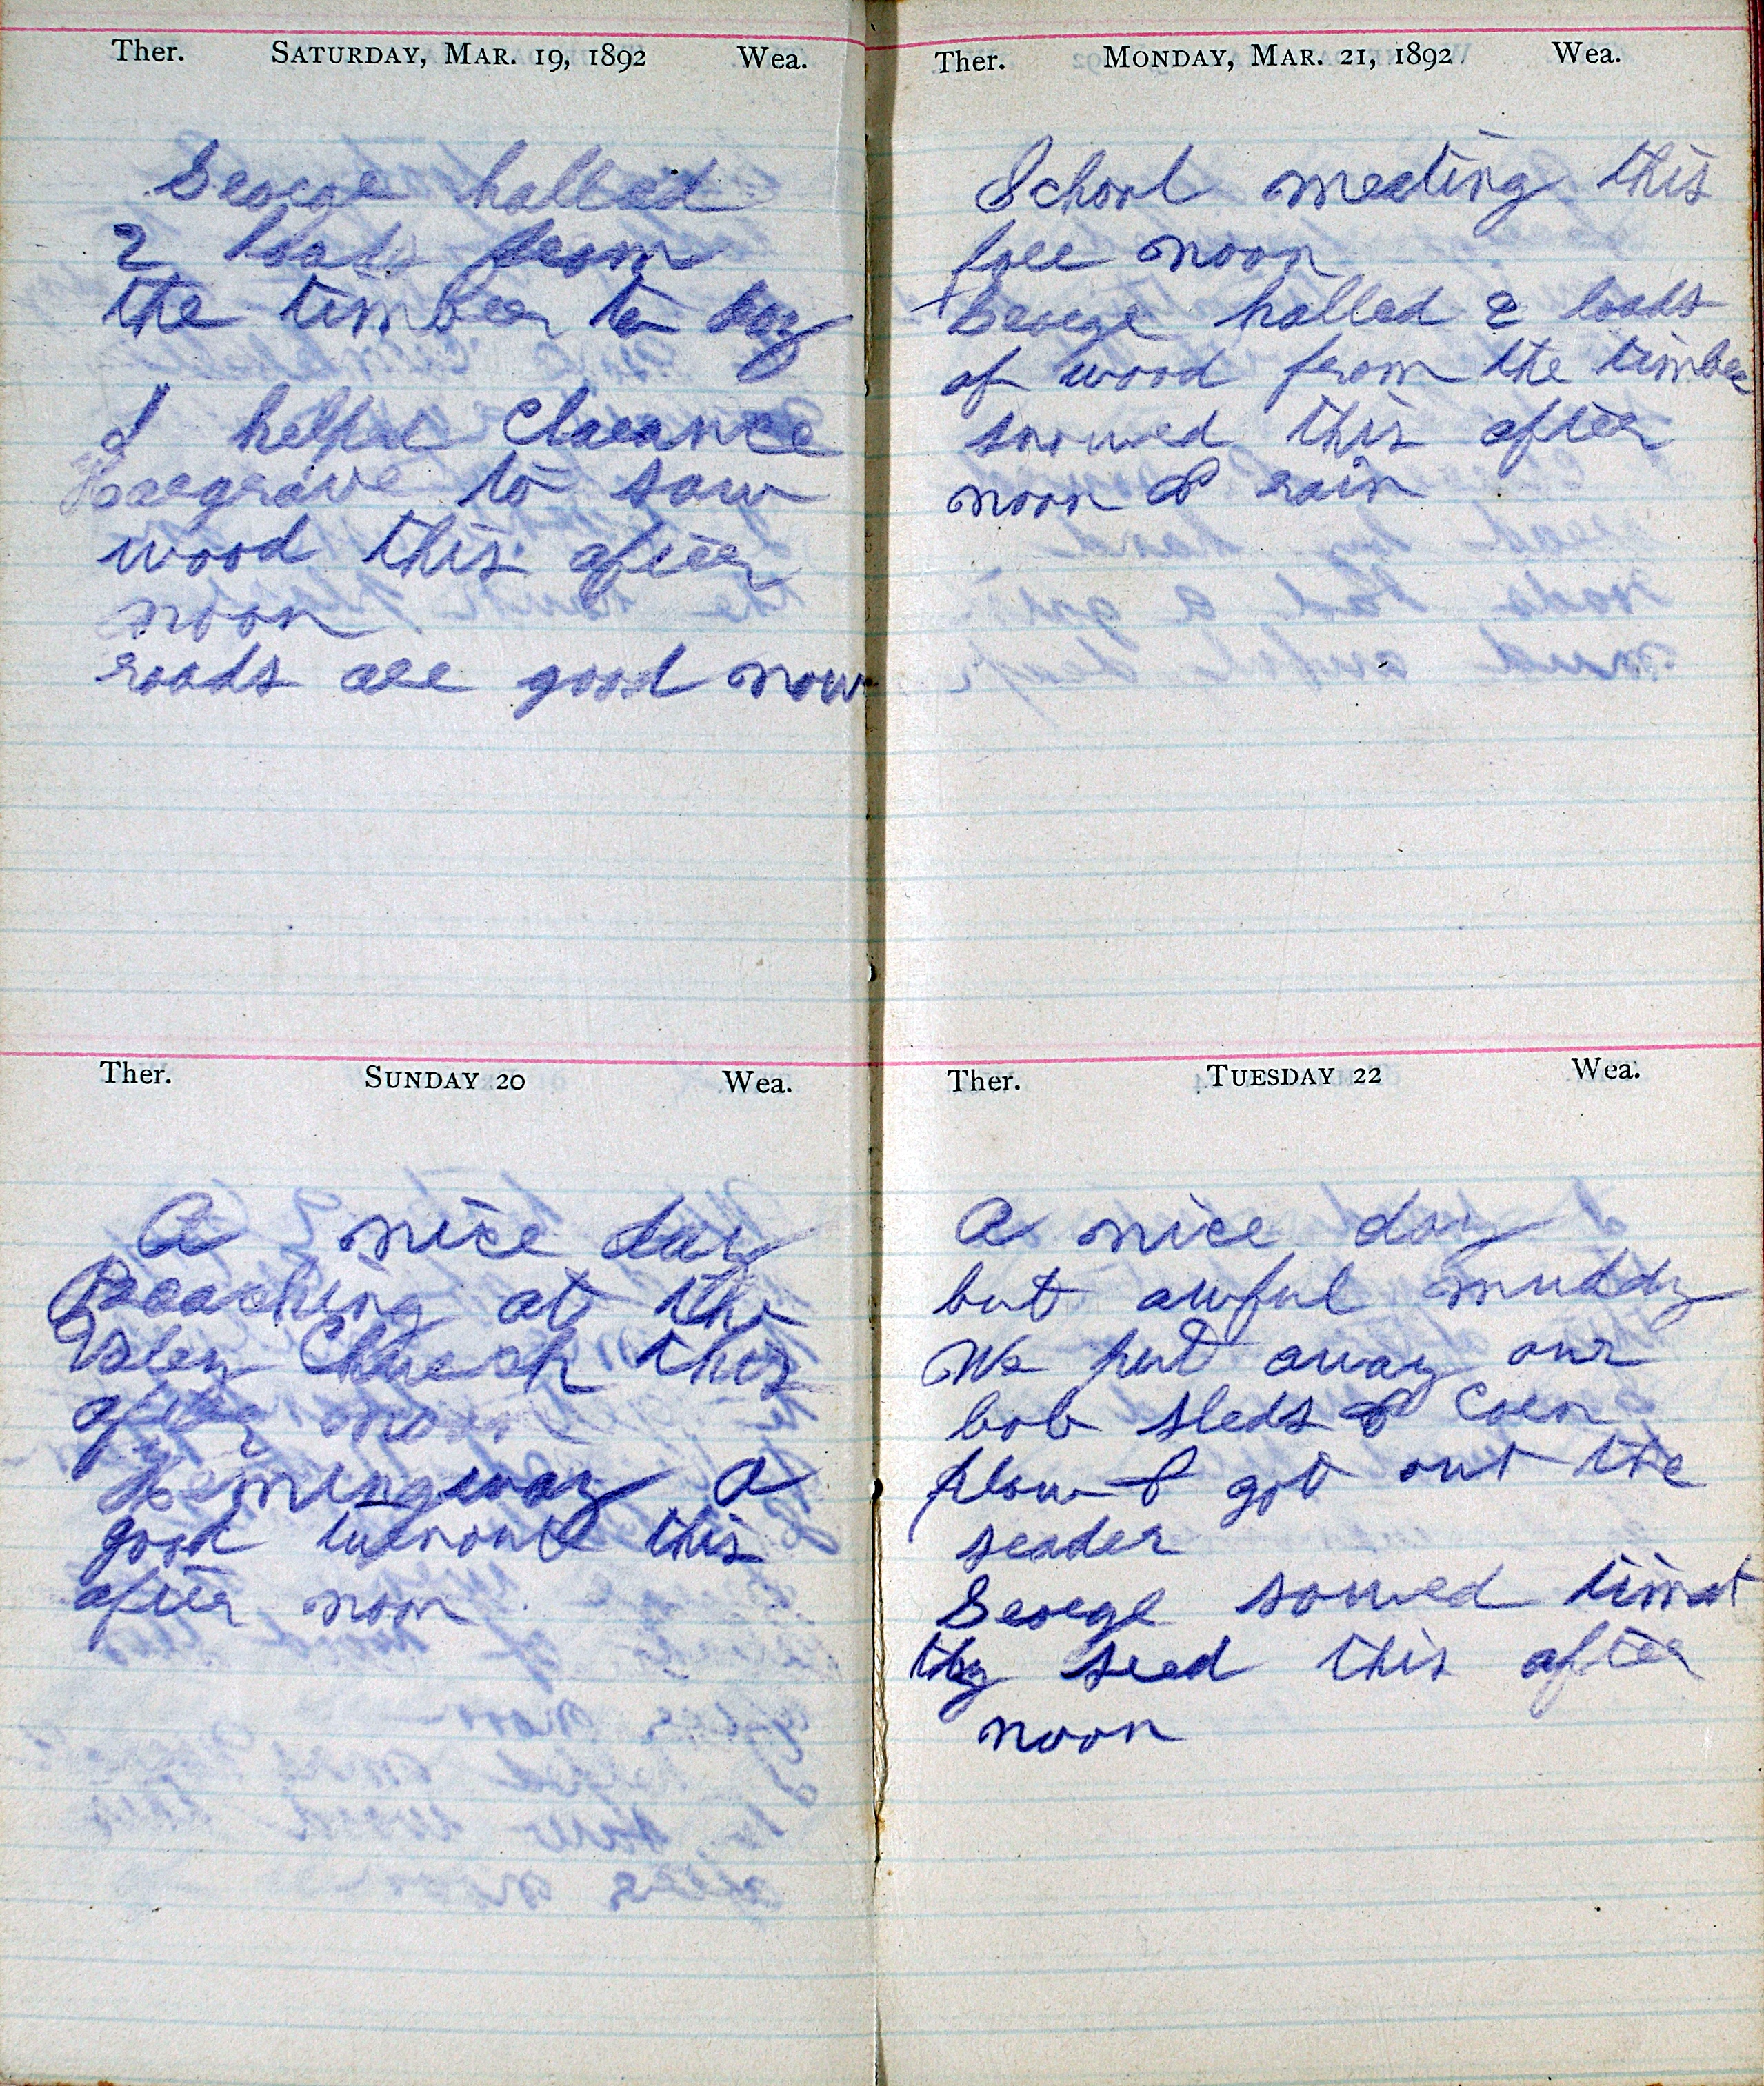 Ther. SATURDAY, MAR. 19, 1892 Wea.
George halled
2 loads from
the timber to day
I helped Clarance
Hargrave to saw
wood this after
noon
roads are good now
Ther. SUNDAY 20 Wea.
A nice day
Preaching at the
Isley Church this
after noon
Hemingway A
good turnout this
after noon
Ther. MONDAY, MAR. 21, 1892 Wea.
School meeting this
fore noon
George halled 2 loads
of wood from the timber
snowed this after
noon & rain
Ther. TUESDAY 22 Wea.
A nice day
but awful muddy
We put away our
bob sleds & Corn
plow & got out the
seader
George sowed timot
thy seed this after
noon